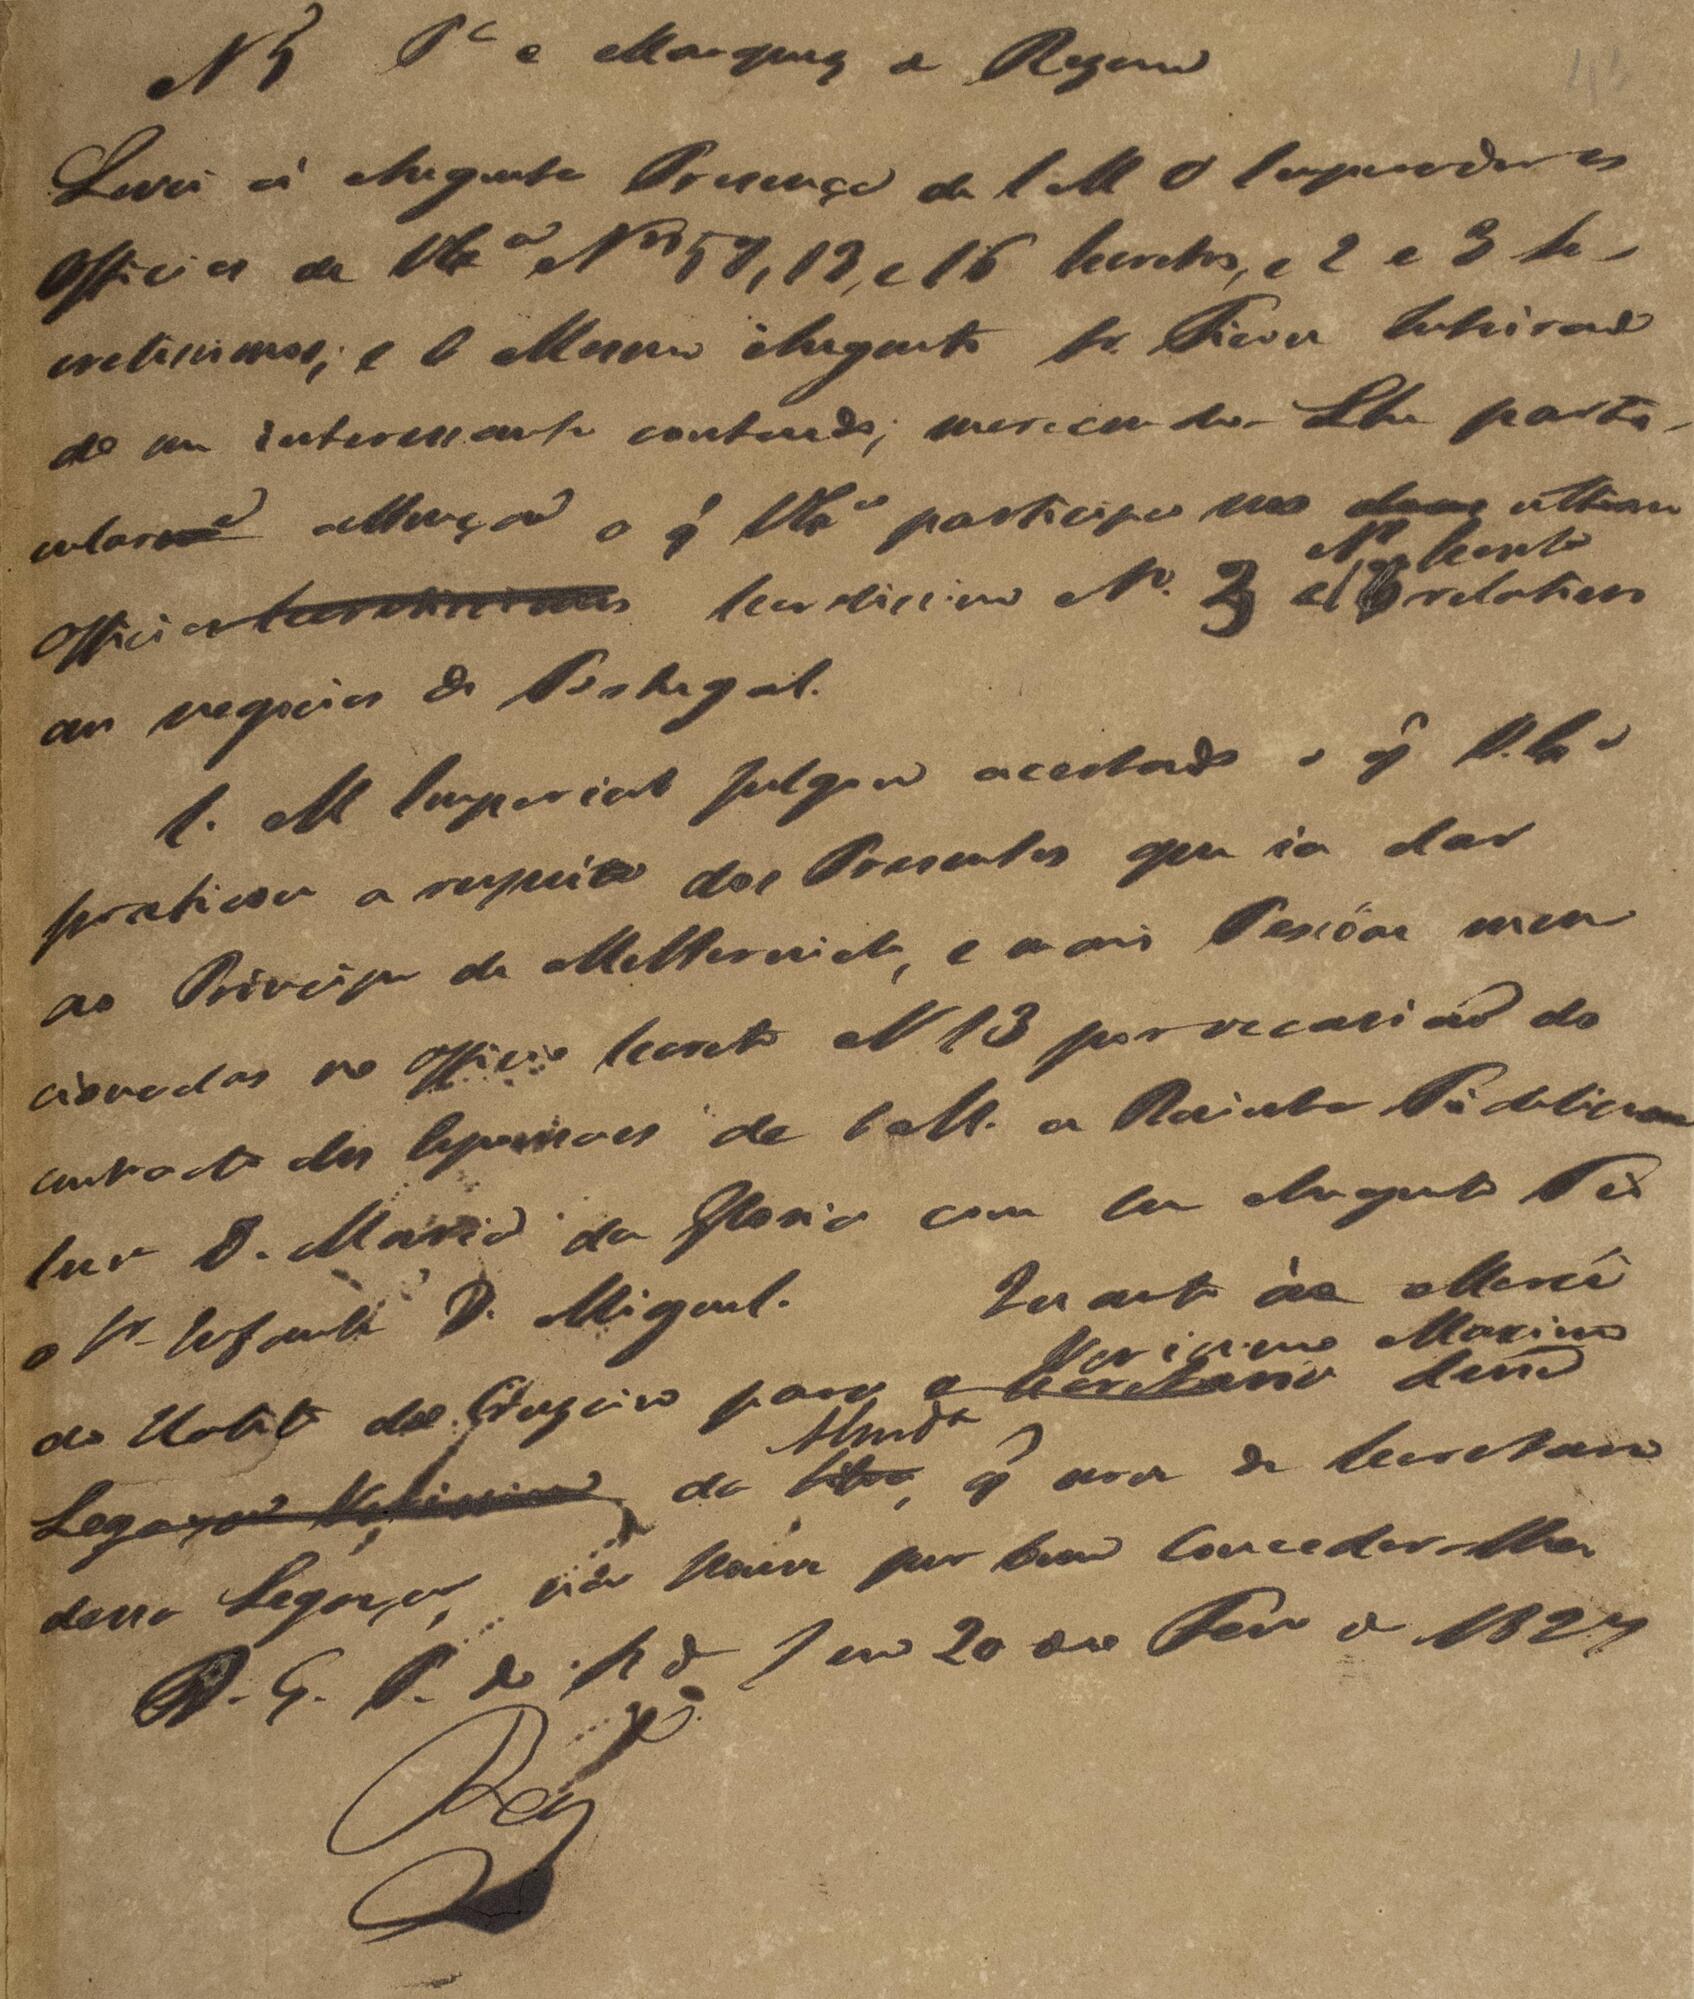 N 5 P.ª o Marquez de Rezende
Levei á Augusta Presença de S M O Imperador os
Officios de V Ex.ª N.os 59, 13, e 16 secretos, e 2 e 3 se-
cretissimos; e O Mesmo Augusto Sr. Ficou Inteirado
do seu interessante contendo; merecendo-Lhe parti-
cularm.e attenção o q̃ V Ex.ª participa nos ultimos
Officios secretissimo N.º 3 e N.º 16 secreto relativos
aos negocios de Portugal.
S. M Imperial julgou acertado o q̃ V. Ex.ª
praticou a respeito dos Presentes que ia dar
ao Principe de Metternich, e a mais Pessôas men
cionadas no officio secreto N 13 por occasião do
contracto dos Esponsaes de S M. a Rainha Fidelissima
Snr.ª D. Maria da Gloria com Seu Augusto Tio
o Sr. Infante D. Miguel. Quanto á Mercê
do Habito do Cruzeiro para o Verissimo Maximo
de Almd.ª, q̃ serve de Secretario
dessa Legação, não houve por bem Conceder-lha
D. G. P. do R de J em 20 de Fevr.o de 1827